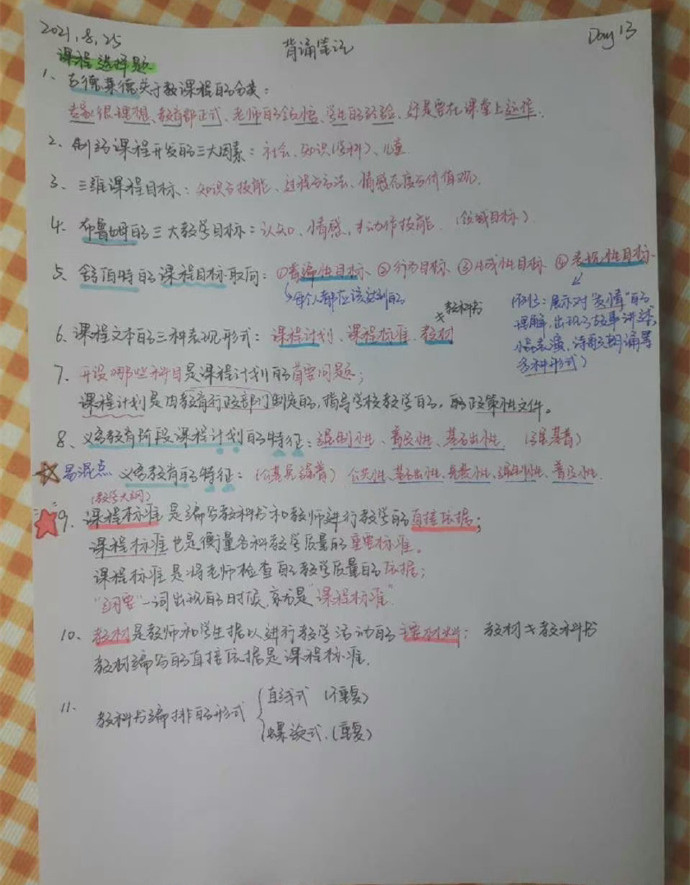 2021.8.25 背诵笔记 Day 13
课程选择题
1、古德莱德关于教课程的分类：
专家很理想、教育部正式、老师的领悟、学生的经验、好是要在课堂上运作.
2、制约课程开发的三大因素：社会、知识(学科)、儿童
3、三维课程目标：知识与技能、过程与方法、情感态度与价值观.
4、布鲁姆的三大教学目标：认知、情感、动作技能.（领域目标）
5、舒伯特的课程目标取向：①普遍性目标 ②行为目标 ③生成性目标 ④表现性目标
↳每个人都应该达到的
展示对"友情"的
理解,出现了故事讲述,
小品表演、诗歌朗诵等
多种形式）
6、课程文本的三种表现形式：课程计划、课程标准、教材≠教科书
7、开设哪些科目是课程计划的首要问题；
课程计划是由教育行政部门制定的，指导学校教学的，的政策性文件。
8、义务教育阶段课程计划的特征：强制性、普及性、基础性 （强基普）
易混点 义务教育的特征：（公基免强普）公共性、基础性、免费性、强制性、普及性.
(教学大纲)
9、课程标准是编写教科书和教师进行教学的直接依据；
课程标准也是衡量各科教学质量的重要标准。
课程标准是将老师检查的教学质量的依据；
"纲要"一词出现的时候,就是"课程标准"
10、教材是教师和学生据以进行教学活动的主要材料； 教材≠教科书
教材编写的直接依据是课程标准.
11. 教科书编排的形式 { 直线式 (不重复)
螺旋式.(重复)